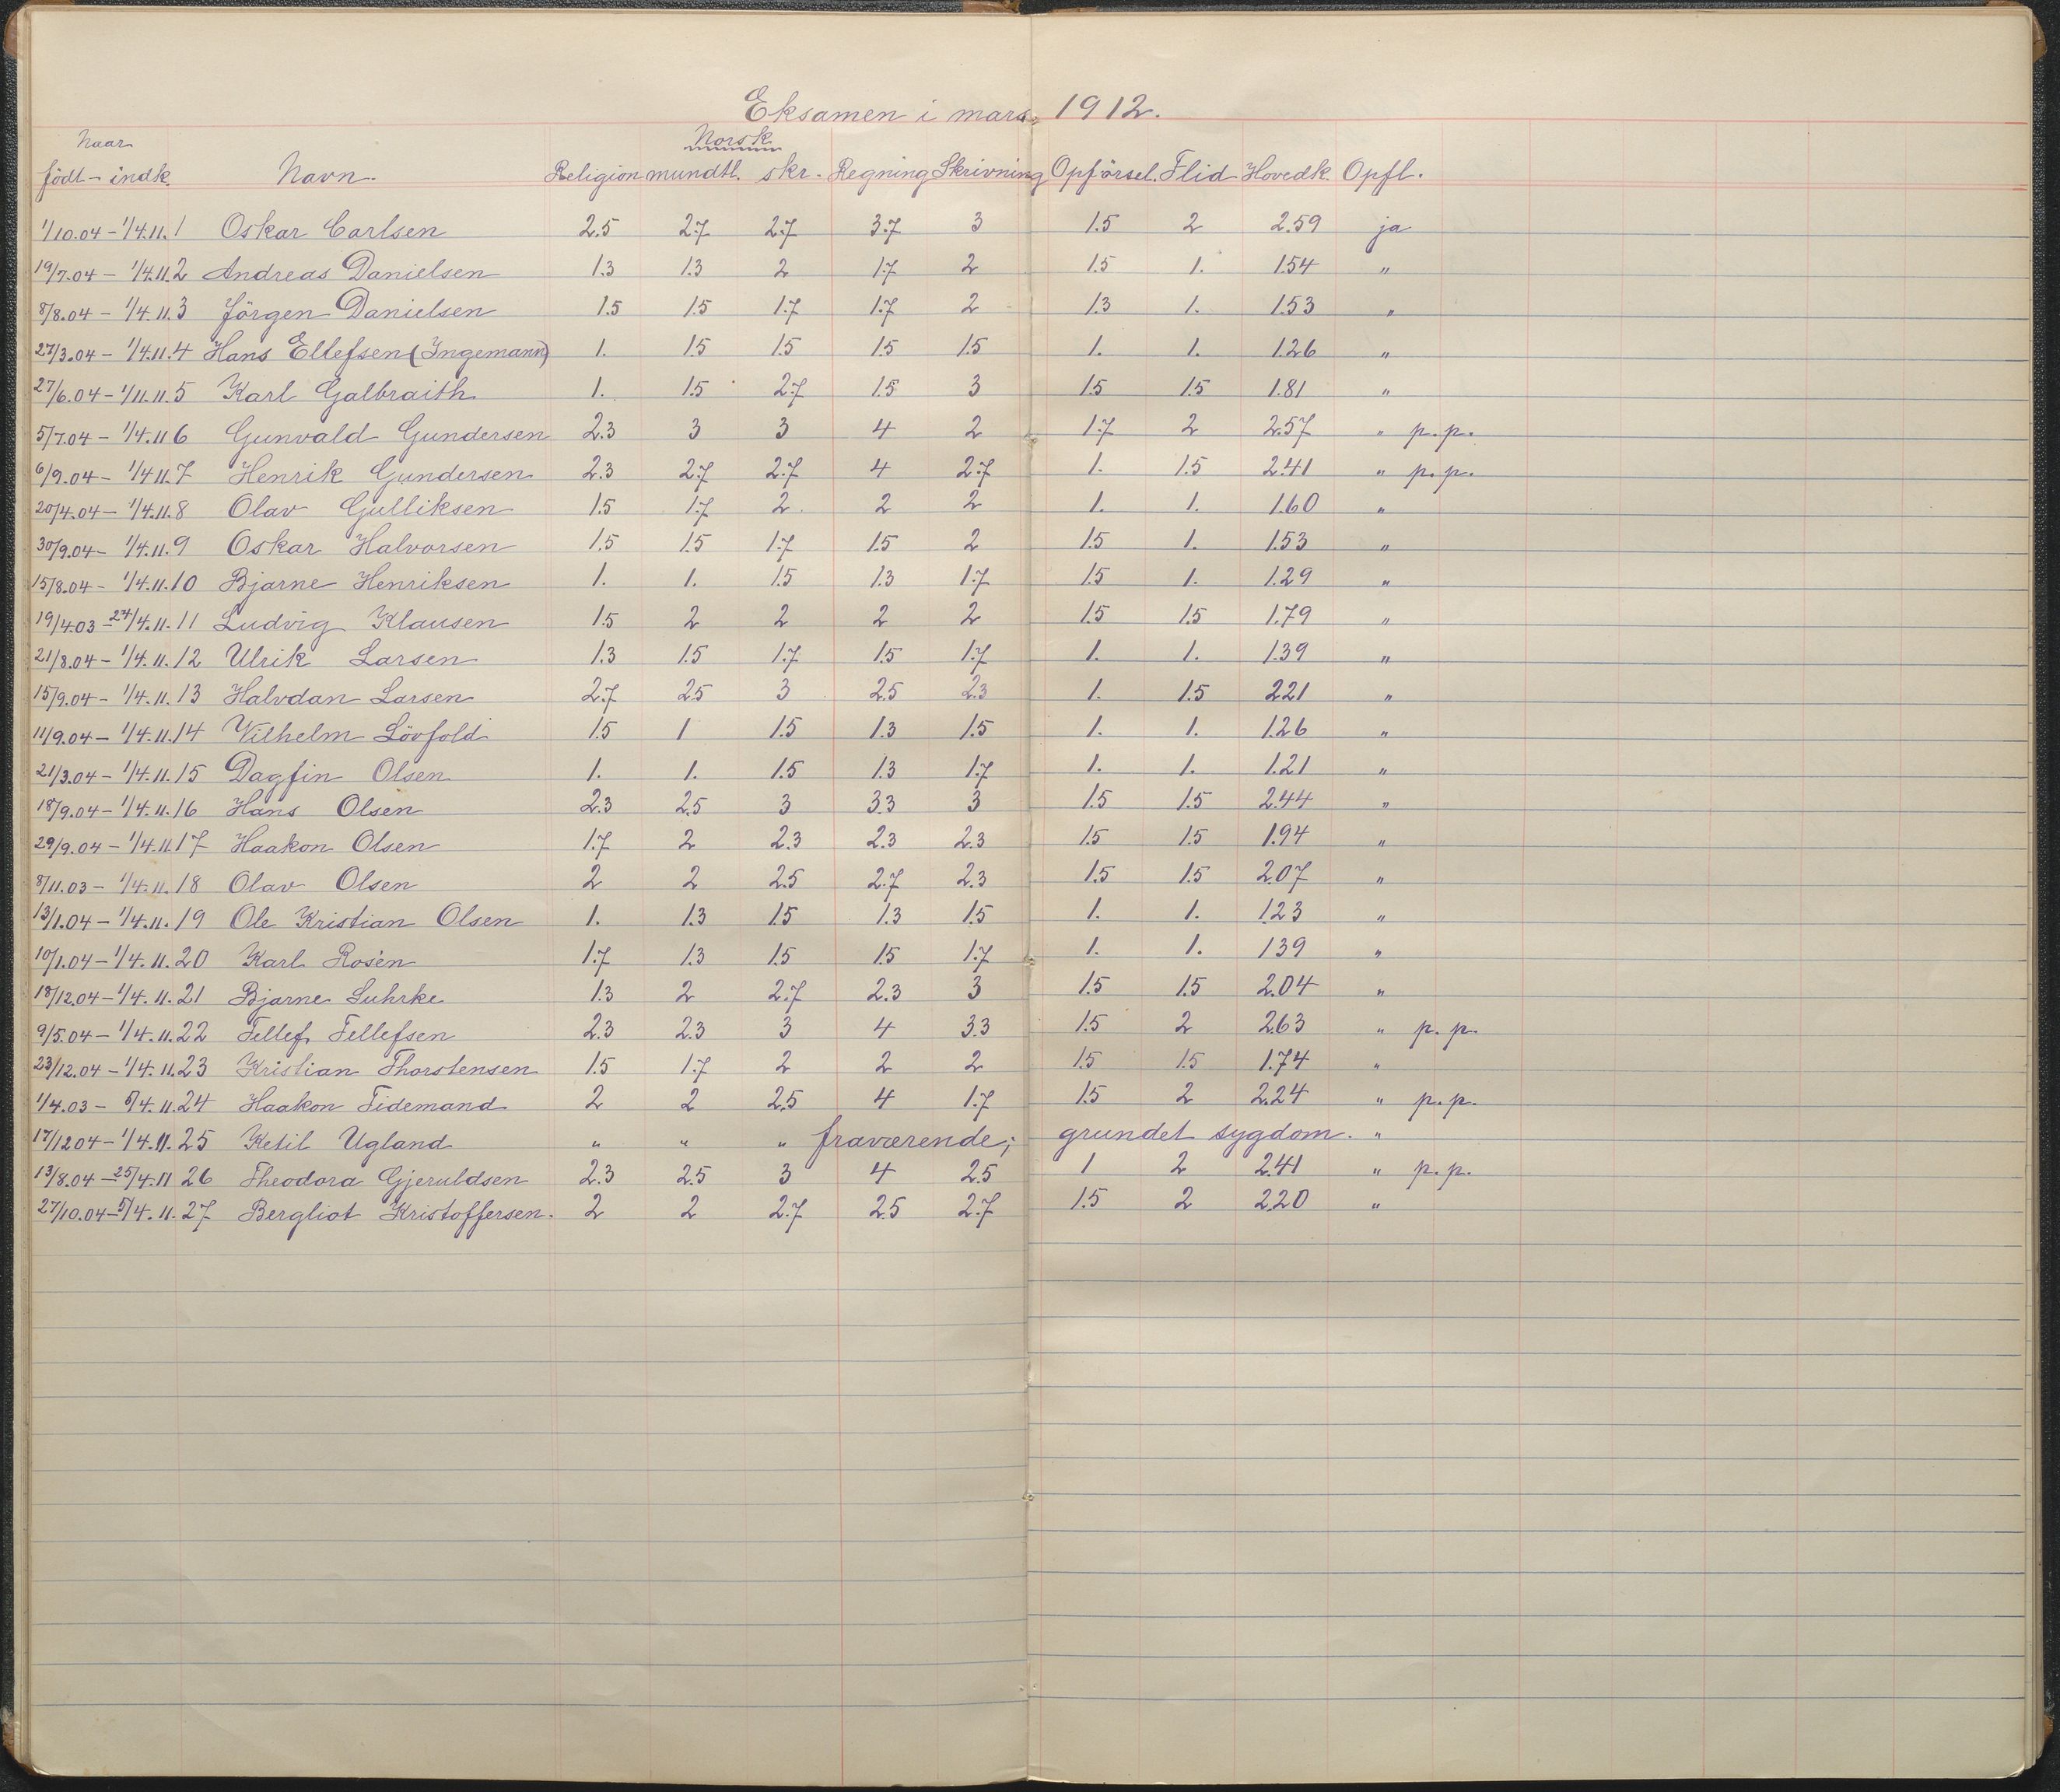 Eksamen i mars 1912.
Naar Norsk
födt - indk. Navn. Religion mundtl. skr. Regning Skrivning Opförsel. Flid Hovedk. Opfl.
1/10.04 - 1/4.11. 1 Oskar Carlsen 2.5 2.7 2.7 3.7 3 1.5 2 2.59 ja
19/7.04 - 1/4.11. 2 Andreas Danielsen 1.3 1.3 2 1.7 2 1.5 1. 1.54 "
8/8.04 - 1/4.11. 3 Jörgen Danielsen 1.5 1.5 1.7 1.7 2 1.3 1. 1.53 "
27/3.04 - 1/4.11. 4 Hans Ellefsen (Ingemann) 1. 1.5 1.5 1.5 1.5 1. 1. 1.26 "
27/6.04 - 1/11.11. 5 Karl Galbraith 1. 1.5 2.7 1.5 3 1.5 1.5 1.81 "
5/7.04 - 1/4.11 6 Gunvald Gundersen 2.3 3 3 4 2 1.7 2 2.57 " p.p.
6/9.04 - 1/4 11. 7 Henrik Gundersen 2.3 2.7 2.7 4 2.7 1. 1.5 2.41 " p.p.
20/4.04 - 1/4.11. 8 Olav Gulliksen 1.5 1.7 2 2 2 1. 1. 1.60 "
30/9.04 - 1/4.11. 9 Oskar Halvorsen 1.5 1.5 1.7 1.5 2 1.5 1. 1.53 "
15/8.04 - 1/4.11. 10 Bjarne Henriksen 1. 1. 1.5 1.3 1.7 1.5 1. 1.29 "
19/4.03 - 24/4.11. 11 Ludvig Klausen 1.5 2 2 2 2 1.5 1.5 1.79 "
21/8.04 - 1/4.11. 12 Ulrik Larsen 1.3 1.5 1.7 1.5 1.7 1. 1. 1.39 "
15/9.04 - 1/4.11. 13 Halvdan Larsen 2.7 2.5 3 2.5 2.3 1. 1.5 2.21 "
11/9.04 - 1/4.11. 14 Vilhelm Lövfold 1.5 1 1.5 1.3 1.5 1. 1. 1.26 "
21/3.04 - 1/4.11. 15 Dagfin Olsen 1. 1. 1.5 1.3 1.7 1. 1. 1.21 "
18/9.04 - 1/4.11. 16 Hans Olsen 2.3 2.5 3 3.3 3 1.5 1.5 2.44 "
29/9.04 - 1/4.11 17 Haakon Olsen 1.7 2 2.3 2.3 2.3 1.5 1.5 1.94 "
8/11.03 - 1/4.11. 18 Olav Olsen 2 2 2.5 2.7 2.3 1.5 1.5 2.07 "
13/1.04 - 1/4.11. 19 Ole Kristian Olsen 1. 1.3 1.5 1.3 1.5 1. 1. 1.23 "
10/1.04 - 1/4.11. 20 Karl Rosén 1.7 1.3 1.5 1.5 1.7 1. 1. 139 "
18/12.04 - 1/4.11. 21 Bjarne Suhrke 1.3 2 2.7 2.3 3 1.5 1.5 2.04 "
9/5.04 - 1/4.11. 22 Tellef Tellefsen 2.3 2.3 3 4 3.3 1.5 2 2.63 " p.p.
23/12.04 - 1/4.11. 23 Kristian Thorstensen 1.5 1.7 2 2 2 1.5 1.5 1.74 "
1/4.03 - 5/4.11. 24 Haakon Tidemand 2 2 2.5 4 1.7 1.5 2 2.24 " p.p.
17/12 04 - 1/4.11. 25 Ketil Ugland " " " fraværende; grundet sygdom. "
13/8.04 - 25/4.11 26 Theodora Gjeruldsen 2.3 2.5 3 4 2.5 1 2 2.41 " p.p.
27/10.04 - 5/4.11. 27 Bergliot Kristoffersen. 2 2 2.7 2.5 2.7 1.5 2 2.20 "